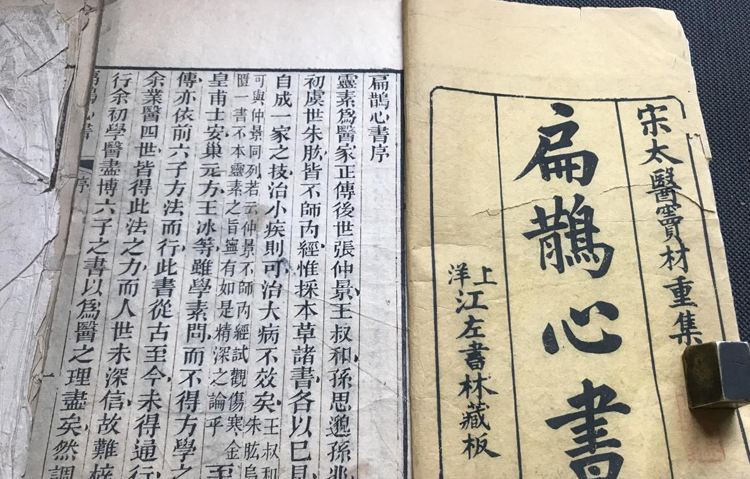 宋太醫竇材重集
扁鵲心書
上洋江左書林藏板
扁鵲心書序
靈素爲醫家正傳後世張仲景王叔和孫思邈孫兆
初虞世朱肱皆不師內經惟採本草諸書各以已見
自成一家之技治小疾則可治大病不效矣王叔和朱肱烏
可與仲景同列若云仲景不師內經試觀傷寒金
匱一書不本靈素之旨寧有如是精深之論乎至
皇甫士安巢元方王冰等雖學素問而不得方學之
傳亦依前六子方法而行此書從古至今未得通行
余業醫四世皆得此法之力而人世未深信故難梓
行余初學醫盡博六子之書以爲醫之理盡矣然調
扁鵲心書 序